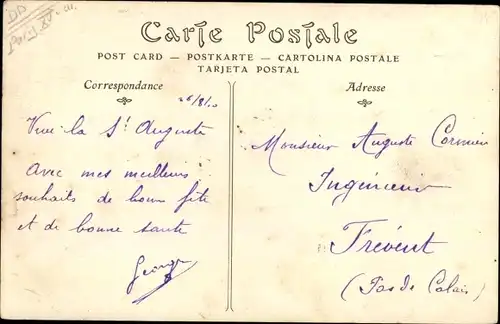 Carte Postale
POST CARD — POSTKARTE — CARTOLINA POSTALE
TARJETA POSTAL
Correspondance
Adresse
26/8/10
Vive la St Auguste
Avec mes meilleurs
souhaits de bonne fête
et de bonne santé
George
Monsieur Auguste Cormier
Ingénieur
Frévent
(Pas de Calais)